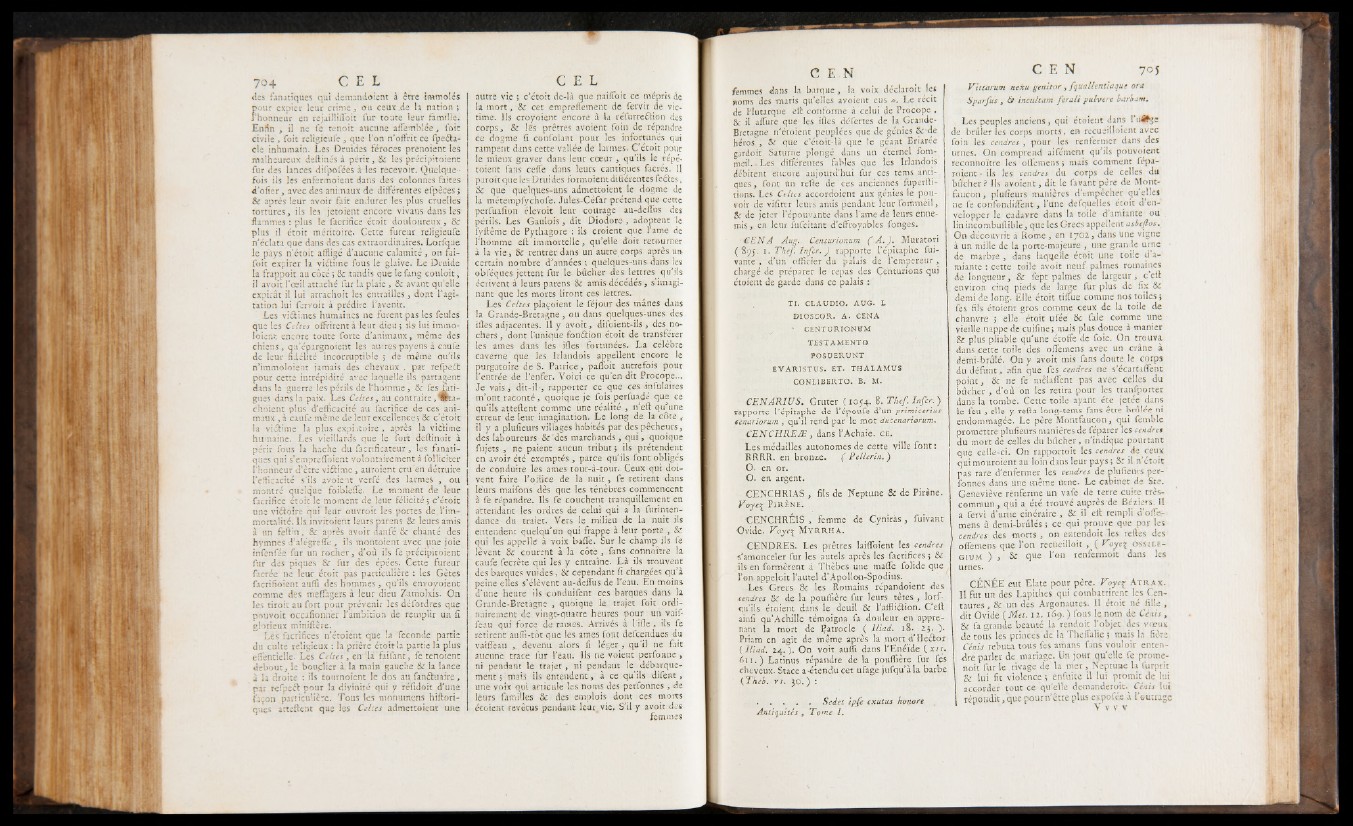 704 C E L
des fanatiques qui demandoient à être immolés
pour expier leur crime, ou ceux de la nation ;
l'honneur en rejailliſſoit ſur toute leur famille.
Enfin, il ne ſe tenoit aucune aſſemblée, ſoit
civile, ſoit religieuſe, que l'on n'offrît ce ſpecta-
cle inhumain. Les Druides féroces prenoient les
malheureux deſtinés à périr, & les précipitoient
ſur des lances diſpoſées à les recevoir. Quelque-
fois ils les enfermoient dans des colonnes faites
d'oſier, avec des animaux de différentes eſpèces ;
& après leur avoir fait endurer les plus cruelles
tortures, ils les jetoient encore vivans dans les
flammes : plus le ſacrifice étoit douloureux, &
plus il étoit méritoire. Cette fureur religieuſe
n'éclata que dans des cas extraordinaires. Lorſque
le pays n'étoit affligé d'aucune calamité, on fai-
ſoit expirer la victime ſous le glaive. Le Druide
la frappoit au côté ; & tandis que le ſang couloit,
il avoit l'œil attaché ſur la plaie, & avant qu'elle
expirât il lui arrachoit les entrailles, dont l'agi-
tation lui ſervoit à prédire l'avenir.
Les victimes humaines ne furent pas les ſeules
que les Celtes offrirent à leur dieu ; ils lui immo-
loient encore toute ſorte d'animaux, même des
chiens, qu'épargnoient les autres payens à cauſe
de leur fidélité incorruptible ; de même qu'ils
n'immoloient jamais des chevaux, par reſpect
pour cette intrépidité avec laquelle ils partagent
dans la guerre les périls de l'homme, & ſes fati-
gues dans la paix. Les Celtes, au contraire, atta-
choient plus d'efficacité au ſacrifice de ces ani-
maux, à cauſe même de leur excellence ; & c'étoit
la victime la plus expiatoire, après la victime
humaine. Les vieillards que le ſort deſtinoit à
périr ſous la hache du ſacrificateur, les fanati-
ques qui s'empreſſoient volontairement à ſolliciter
l'honneur d'être victime, auroient cru en détruire
l'efficacité s'ils avoient verſé des larmes, ou
montré quelque foibleſſe. Le moment de leur
ſacrifice étoit le moment de leur félicité ; c'étoit
une victoire qui leur ouvroit les portes de l'im-
mortalité. Ils invitoient leurs parens & leurs amis
à un feſtin, & après avoir danſé & chanté des
hymnes d'alégreſſe, ils montoient avec une joie
inſenſée ſur un rocher, d'où ils ſe précipitoient
ſur des piques & ſur des épées. Cette fureur
ſacrée ne leur étoit pas particulière : les Gètes
ſacrifioient auſſi des hommes, qu'ils envoyoient
comme des meſſagers à leur dieu Zamolxis. On
les tiroit au ſort pour prévenir les déſordres que
pouvoit occaſionner l'ambition de remplir un ſi
glorieux miniſtère.
Les ſacrifices n'étoient que la ſeconde partie
du culte religieux : la prière étoit la partie la plus
eſſentielle. Les Celtes, en la faiſant, ſe tenoient
debout, le bouclier à la main gauche & la lance
à la droite : ils tournoient le dos au ſanctuaire,
par reſpect pour la divinité qui y réſidoit d'une
façon particulière. Tous les monumens hiſtori-
ques atteſtent que les Celtes admettoient une
C E L
autre vie ; c'étoit de-là que naiſſoit ce mépris de
la mort, & cet empreſſement de ſervir de vic-
time. Ils croyoient encore à la réſurrection des
corps, & les prêtres avoient ſoin de répandre
ce dogme ſi conſolant pour les infortunés qui
rampent dans cette vallée de larmes. C'étoit pour
le mieux graver dans leur cœur, qu'ils le répé-
toient ſans ceſſe dans leurs cantiques ſacrés. Il
paroît que les Druides formoient différentes ſectes,
& que quelques-uns admettoient le dogme de
la métempſychoſe. Jules-Céſar prétend que cette
perſuaſion élevoit leur courage au-deſſus des
périls. Les Gaulois, dit Diodore, adoptent le
ſyſtême de Pythagore : ils croient que l'ame de
l'homme eſt immortelle, qu'elle doit retourner
à la vie, & rentrer dans un autre corps après un
certain nombre d'années : quelques-uns dans les
obſèques jettent ſur le bûcher des lettres qu'ils
écrivent à leurs parens & amis décédés, s'imagi-
nant que les morts liront ces lettres.
Les Celtes plaçoient le ſéjour des mânes dans
la Grande-Bretagne, ou dans quelques-unes des
iſles adjacentes. Il y avoit, diſoient-ils, des no-
chers, dont l'unique fonction étoit de transférer
les ames dans les iſles fortunées. La célèbre
caverne que les Irlandois appellent encore le
purgatoire de S. Patrice, paſſoit autrefois pour
l'entrée de l'enfer. Voici ce qu'en dit Procope...
Je vais, dit-il, rapporter ce que ces inſulaires
m'ont raconté, quoique je ſois perſuadé que ce
qu'ils atteſtent comme une réalité, n'eſt qu'une
erreur de leur imagination. Le long de la côte,
il y a pluſieurs villages habités par des pêcheurs,
des laboureurs & des marchands, qui, quoique
ſujets, ne paient aucun tribut ; ils prétendent
en avoir été exemptés, parce qu'ils ſont obligés
de conduire les ames tour-à-tour. Ceux qui doi-
vent faire l'office de la nuit, ſe retirent dans
leurs maiſons dès que les ténèbres commencent
à ſe répandre. Ils ſe couchent tranquillement en
attendant les ordres de celui qui a la ſurinten-
dance du trajet. Vers le milieu de la nuit ils
entendent quelqu'un qui frappe à leur porte, &
qui les appelle à voix baſſe. Sur le champ ils ſe
lèvent & courent à la côte, ſans connoître la
cauſe ſecrète qui les y entraîne. Là ils trouvent
des barques vuides, & cependant ſi chargées qu'à
peine elles s'élèvent au-deſſus de l'eau. En moins
d'une heure ils conduiſent ces barques dans la
Grande-Bretagne, quoique le trajet ſoit ordi-
nairement de vingt-quatre heures pour un vaiſ-
ſeau qui force de rames. Arrivés à l'iſle, ils ſe
retirent auſſi-tôt que les ames ſont deſcendues du
vaiſſeau, devenu alors ſi léger, qu'il ne fait
aucune trace ſur l'eau. Ils ne voient perſonne,
ni pendant le trajet, ni pendant le débarque-
ment ; mais ils entendent, à ce qu'ils diſent,
une voix qui articule les noms des perſonnes, de
leurs familles & des emplois dont ces morts
étoient revêtus pendant leur vie. S'il y avoit des
femmes
C E N
femmes dans la barque, la voix déclaroit les
noms des maris qu'elles avoient eus ». Le récit
de Plutarque eſt conforme à celui de Procope,
& il aſſure que les iſles déſertes de la Grande-
Bretagne n'étoient peuplées que de génies & de
héros, & que c'étoit-là que le géant Briarée
gardoit Saturne plongé dans un éternel ſom-
meil. Les différentes fables que les Irlandois
débitent encore aujourd'hui ſur ces tems anti-
ques, ſont un reſte de ces anciennes ſuperſti-
tions. Les Celtes accordoient aux génies le pou-
voir de viſiter leurs amis pendant leur ſommeil,
& de jeter l'épouvante dans l'ame de leurs enne-
mis, en leur ſuſcitant d'effroyables ſonges.
CENA Aug. Centurionum ( A. ). Muratori
( 895. 1. Theſ. Inſcr. ) rapporte l'épitaphe ſui-
vante, d'un officier du palais de l'empereur,
chargé de préparer le repas des Centurions qui
étoient de garde dans ce palais :
TI. CLAUDIO. AUG. L
DIOSCOR. A. CENA
CENTURIONUM
TESTAMENTO
POSUERUNT
EVARISTUS. ET. THALAMUS
CONLIBERTO. B. M.
CENARIUS. Gruter ( 1054. 8. Theſ. Inſcr. )
rapporte l'épitaphe de l'épouſe d'un primicerius
cenariorum, qu'il rend par le mot ducenariorum.
CENCHREÆ, dans l'Achaie. CE.
Les médailles autonomes de cette ville ſont :
RRRR. en bronze. ( Pellerin. )
O. en or.
O. en argent.
CENCHRIAS, fils de Neptune & de Pirène.
Voyez PIRÈNE.
CENCHRÉIS, femme de Cyniras, ſuivant
Ovide. Voyez MYRRHA.
CENDRES. Les prêtres laiſſoient les cendres
s'amonceler ſur les autels après les ſacrifices ; &
ils en formèrent à Thèbes une maſſe ſolide que
l'on appeloit l'autel d'Apollon-Spodius.
Les Grecs & les Romains répandoient des
cendres & de la pouſſière ſur leurs têtes, lorſ-
qu'ils étoient dans le deuil & l'affliction. C'eſt
ainſi qu'Achille témoigna ſa douleur en appre-
nant la mort de Patrocle ( Iliad. 18. 23. ).
Priam en agit de même après la mort d'Hector
( Iliad. 24. ). On voit auſſi dans l'Enéide ( XII.
611. ) Latinus répandre de la pouſſière ſur ſes
cheveux. Stace a étendu cet uſage juſqu'à la barbe
( Theb. VI. 30. ) :
. . . . . Sedet ipſe exutus honore
Antiquités, Tome I.
C E N 705
Vittarum nenu genitor, ſquallentiaque ora
Sparſus, & incultam ferali pulvere barbam.
Les peuples anciens, qui étoient dans l'uſage
de brûler les corps morts, en recueilloient avec
ſoin les cendres, pour les renfermer dans des
urnes. On comprend aiſément qu'ils pouvoient
reconnoître les oſſemens ; mais comment ſépa-
roient-ils les cendres du corps de celles du
bûcher ? Ils avoient, dit le ſavant père de Mont-
faucon, pluſieurs manières d'empêcher qu'elles
ne ſe confondiſſent, l'une deſquelles étoit d'en-
velopper le cadavre dans la toile d'amiante ou
lin incombuſtible, que les Grecs appellent asbeſtos.
On découvrit à Rome, en 1702, dans une vigne
à un mille de la porte-majeure, une grande urne
de marbre, dans laquelle étoit une toile d'a-
miante : cette toile avoit neuf palmes romaines
de longueur, & ſept palmes de largeur, c'eſt
environ cinq pieds de large ſur plus de ſix &
demi de long. Elle étoit tiſſue comme nos toiles ;
ſes fils étoient gros comme ceux de la toile de
chanvre ; elle étoit uſée & ſale comme une
vieille nappe de cuiſine ; mais plus douce à manier
& plus pliable qu'une étoffe de ſoie. On trouva
dans cette toile des oſſemens avec un crâne à
demi-brûlé. On y avoit mis ſans doute le corps
du défunt, afin que ſes cendres ne s'écartaſſent
point, & ne ſe mêlaſſent pas avec celles du
bûcher, d'où on les retira pour les tranſporter
dans la tombe. Cette toile ayant été jetée dans
le feu, elle y reſta long-tems ſans être brûlée ni
endommagée. Le père Montfaucon, qui ſemble
promettre pluſieurs manières de ſéparer les cendres
du mort de celles du bûcher, n'indique pourtant
que celle-ci. On rapportoit les cendres de ceux
qui mouroient au loin dans leur pays ; & il n'étoit
pas rare d'enfermer les cendres de pluſieurs per-
ſonnes dans une même urne. Le cabinet de Ste.
Geneviève renferme un vaſe de terre cuite très-
commun, qui a été trouvé auprès de Béziers. Il
a ſervi d'urne cinéraire, & il eſt rempli d'oſſe-
mens à demi-brûlés ; ce qui prouve que par les
cendres des morts, on entendoit les reſtes des
oſſemens que l'on recueilloit, ( Voyez OSSILE-
GIUM ) , & que l'on renfermoit dans les
urnes.
CÉNÉE eut Elate pour père. Voyez ATRAX.
Il fut un des Lapithes qui combattirent les Cen-
taures, & un des Argonautes. Il étoit né fille,
dit Ovide ( Met. 12. 169. ) ſous le nom de Cénis,
& ſa grande beauté la rendoit l'objet des vœux
de tous les princes de la Theſſalie ; mais la fière
Cénis rebuta tous ſes amans ſans vouloir enten-
dre parler de mariage. Un jour qu'elle ſe prome-
noit ſur le rivage de la mer, Neptune la ſurprit
& lui fit violence ; enſuite il lui promit de lui
accorder tout ce qu'elle demanderoit. Cénis lui
répondit, que pour n'être plus expoſée à l'outrage
V v v v